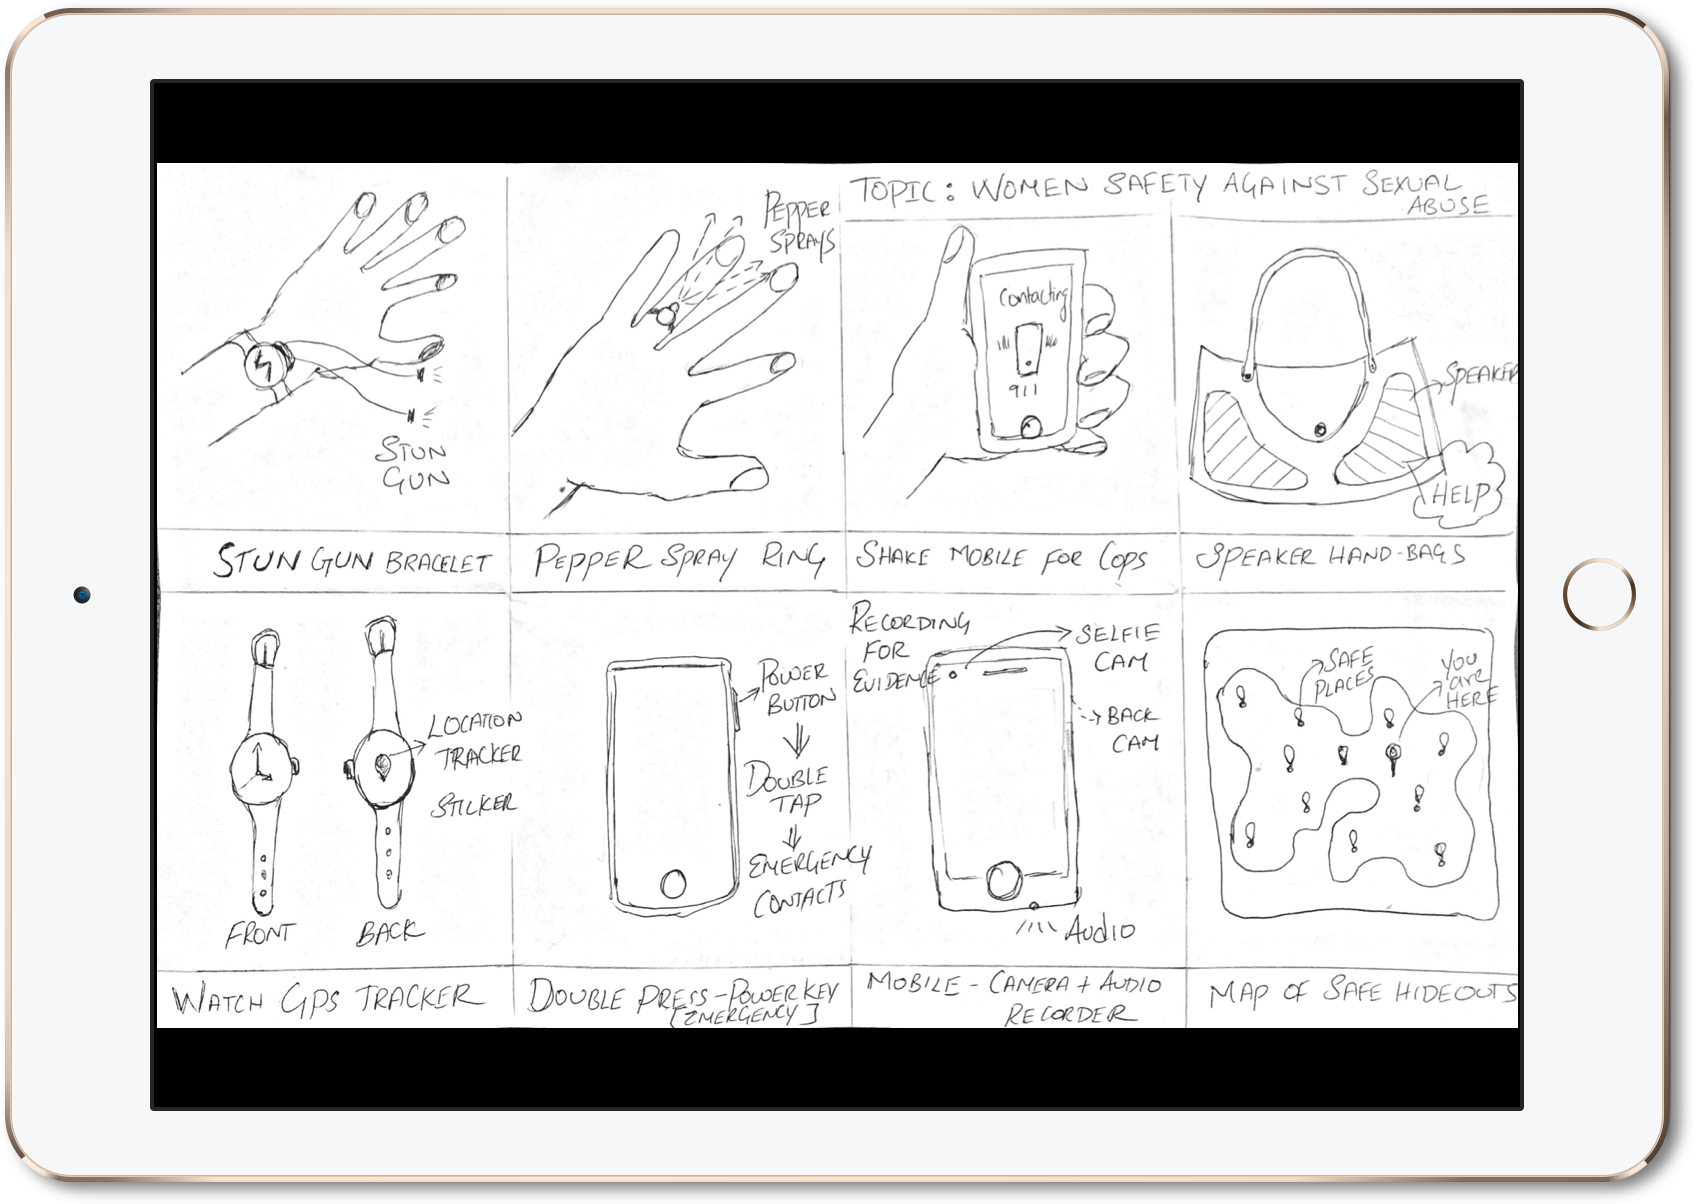 TOPIC: WOMEN SAFETY AGAINST SEXUAL
ABUSE
STUN
GUN
STUN GUN BRACELET
PEPPER
SPRAYS
PEPPER SPRAY RING
Contacting
911
SHAKE MOBILE FOR COPS
SPEAKER
HELP
SPEAKER HAND-BAGS
LOCATION
TRACKER
STICKER
FRONT
BACK
WATCH GPS TRACKER
POWER
BUTTON
DOUBLE
TAP
EMERGENCY
CONTACTS
DOUBLE PRESS-POWER KEY
[EMERGENCY]
RECORDING
FOR
EVIDENCE
SELFIE
CAM
BACK
CAM
AUDIO
MOBILE - CAMERA + AUDIO
RECORDER
SAFE
PLACES
YOU
ARE
HERE
MAP OF SAFE HIDEOUTS